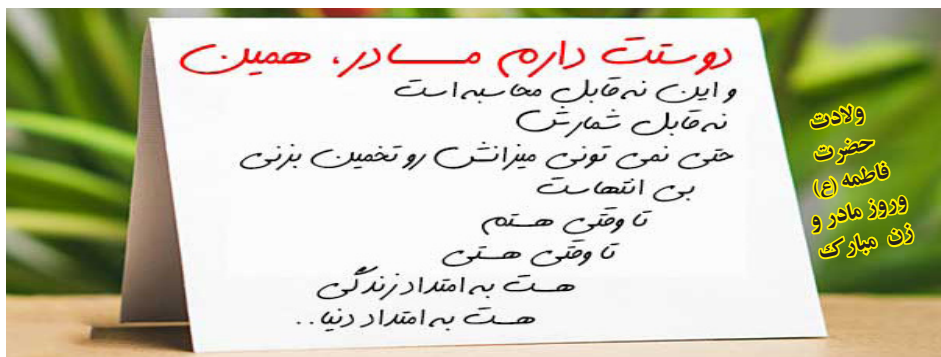 دوستت دارم مادر، همین
و این نه قابل محاسبه است
نه قابل شمارش
حتی نمی تونی میزانش رو تخمین بزنی
بی انتهاست
تا وقتی هستم
تا وقتی هستی
هست به امتداد زندگی
هست به امتداد دنیا..
ولادت
حضرت
فاطمه (ع)
وروز مادر و
زن مبارک